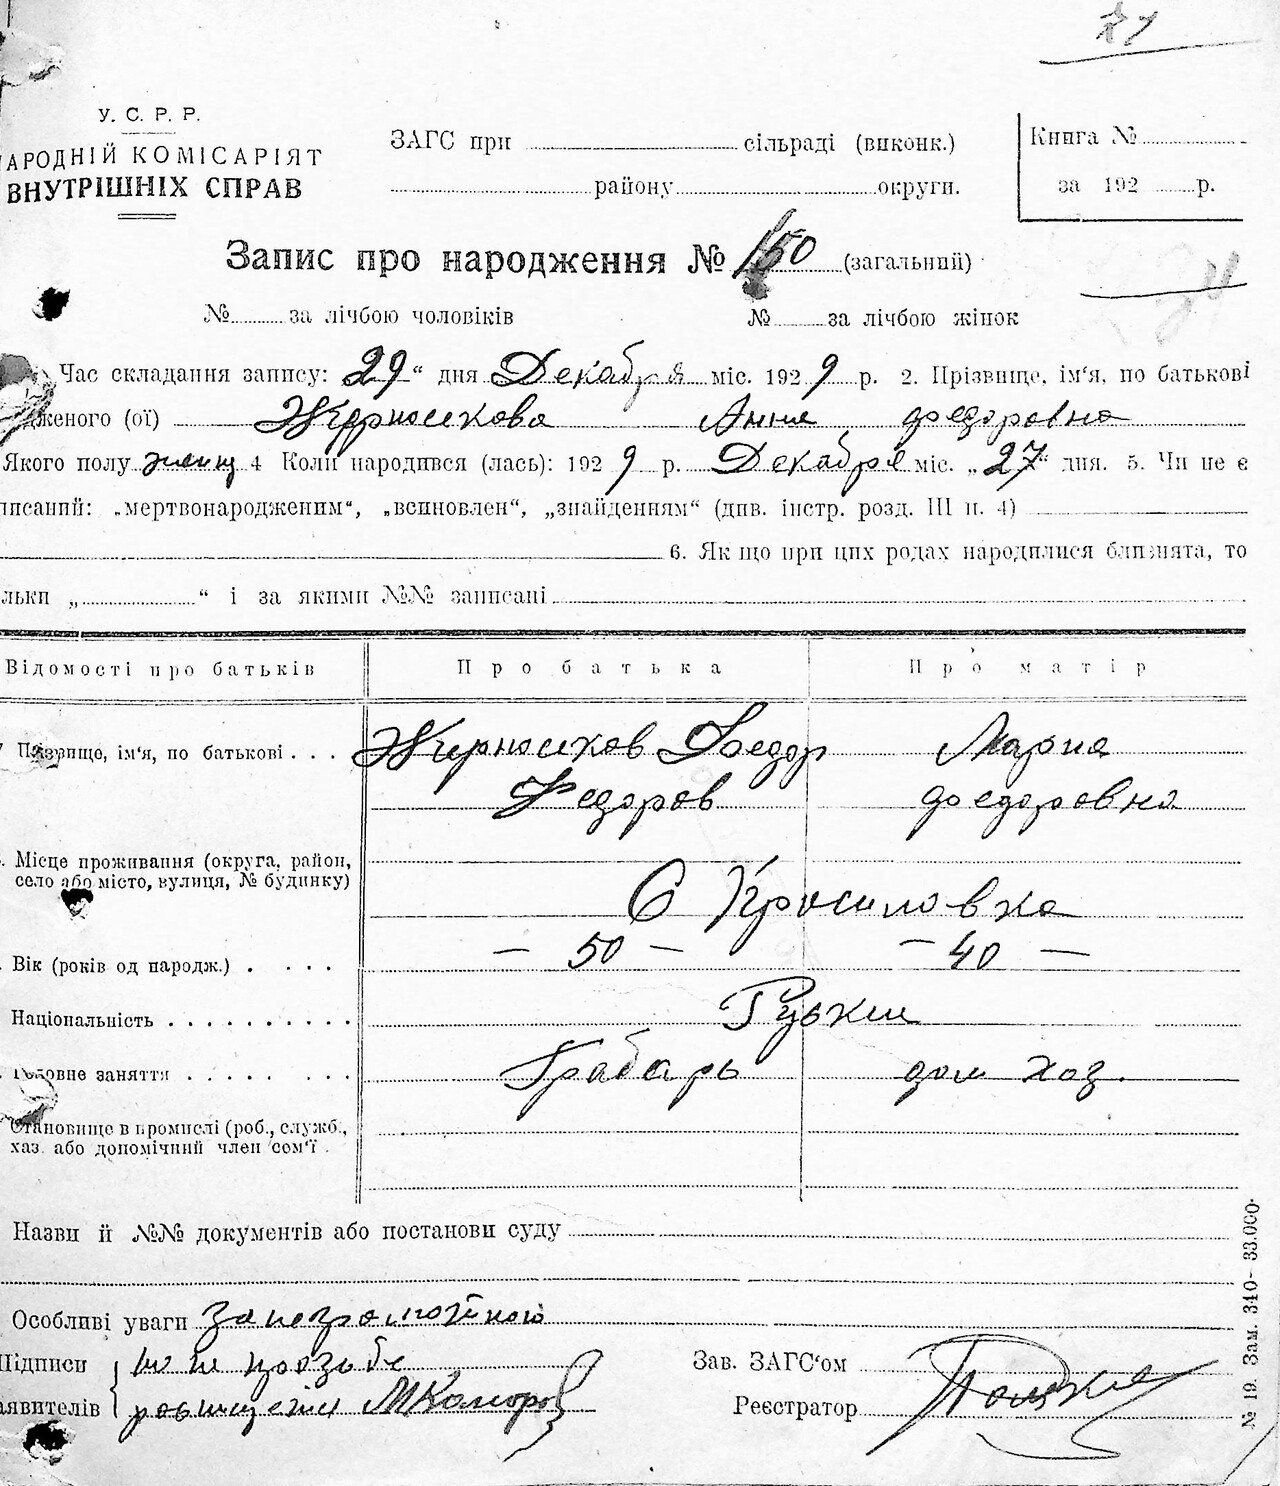 21
У. С. Р. Р.
НАРОДНІЙ КОМІСАРІЯТ
ВНУТРІШНІХ СПРАВ
ЗАГС при сільраді (виконк.)
району округи.
Книга №
за 192 р.
Запис про народження № 150 (загальний)
№ за лічбою чоловіків № за лічбою жінок
Час складання запису: 29 “ дня Декабря міс. 1929 р. 2. Прізвище, ім‘я, по батькові
дженого (ої) Жерносекова Анна Федоровна
Якого полу женщ 4 Коли народився (лась): 1929 р. Декабре міс. „27“ дня. 5. Чи не є
писаний: „мертвонародженим“, „всиновлен“, „знайденням“ (див. інстр. розд. III п. 4)
6. Як що при цих родах народилися близнята, то
льки „ “ і за якими №№ записані
Відомості про батьків Про батька Про матір
Прізвище, ім‘я, по батькові . . . Жерносеков Федор Мария
Федоров Федоровна
Місце проживання (округа, район,
село або місто, вулиця, № будинку)
С Красиловка
Вік (років од народж.) . . . . — 50 — — 40 —
Національність . . . . . . . . . . Руськие
Головне заняття . . . . . . . . Грабарь дом хоз.
Становище в промислі (роб., служб.,
хаз. або допомічний член сем‘ї .
Назви й №№ документів або постанови суду
Особливі уваги
Підписи
аявителів
Зав. ЗАГС‘ом
Реєстратор
№ 19. Зам. 340- 33.000.